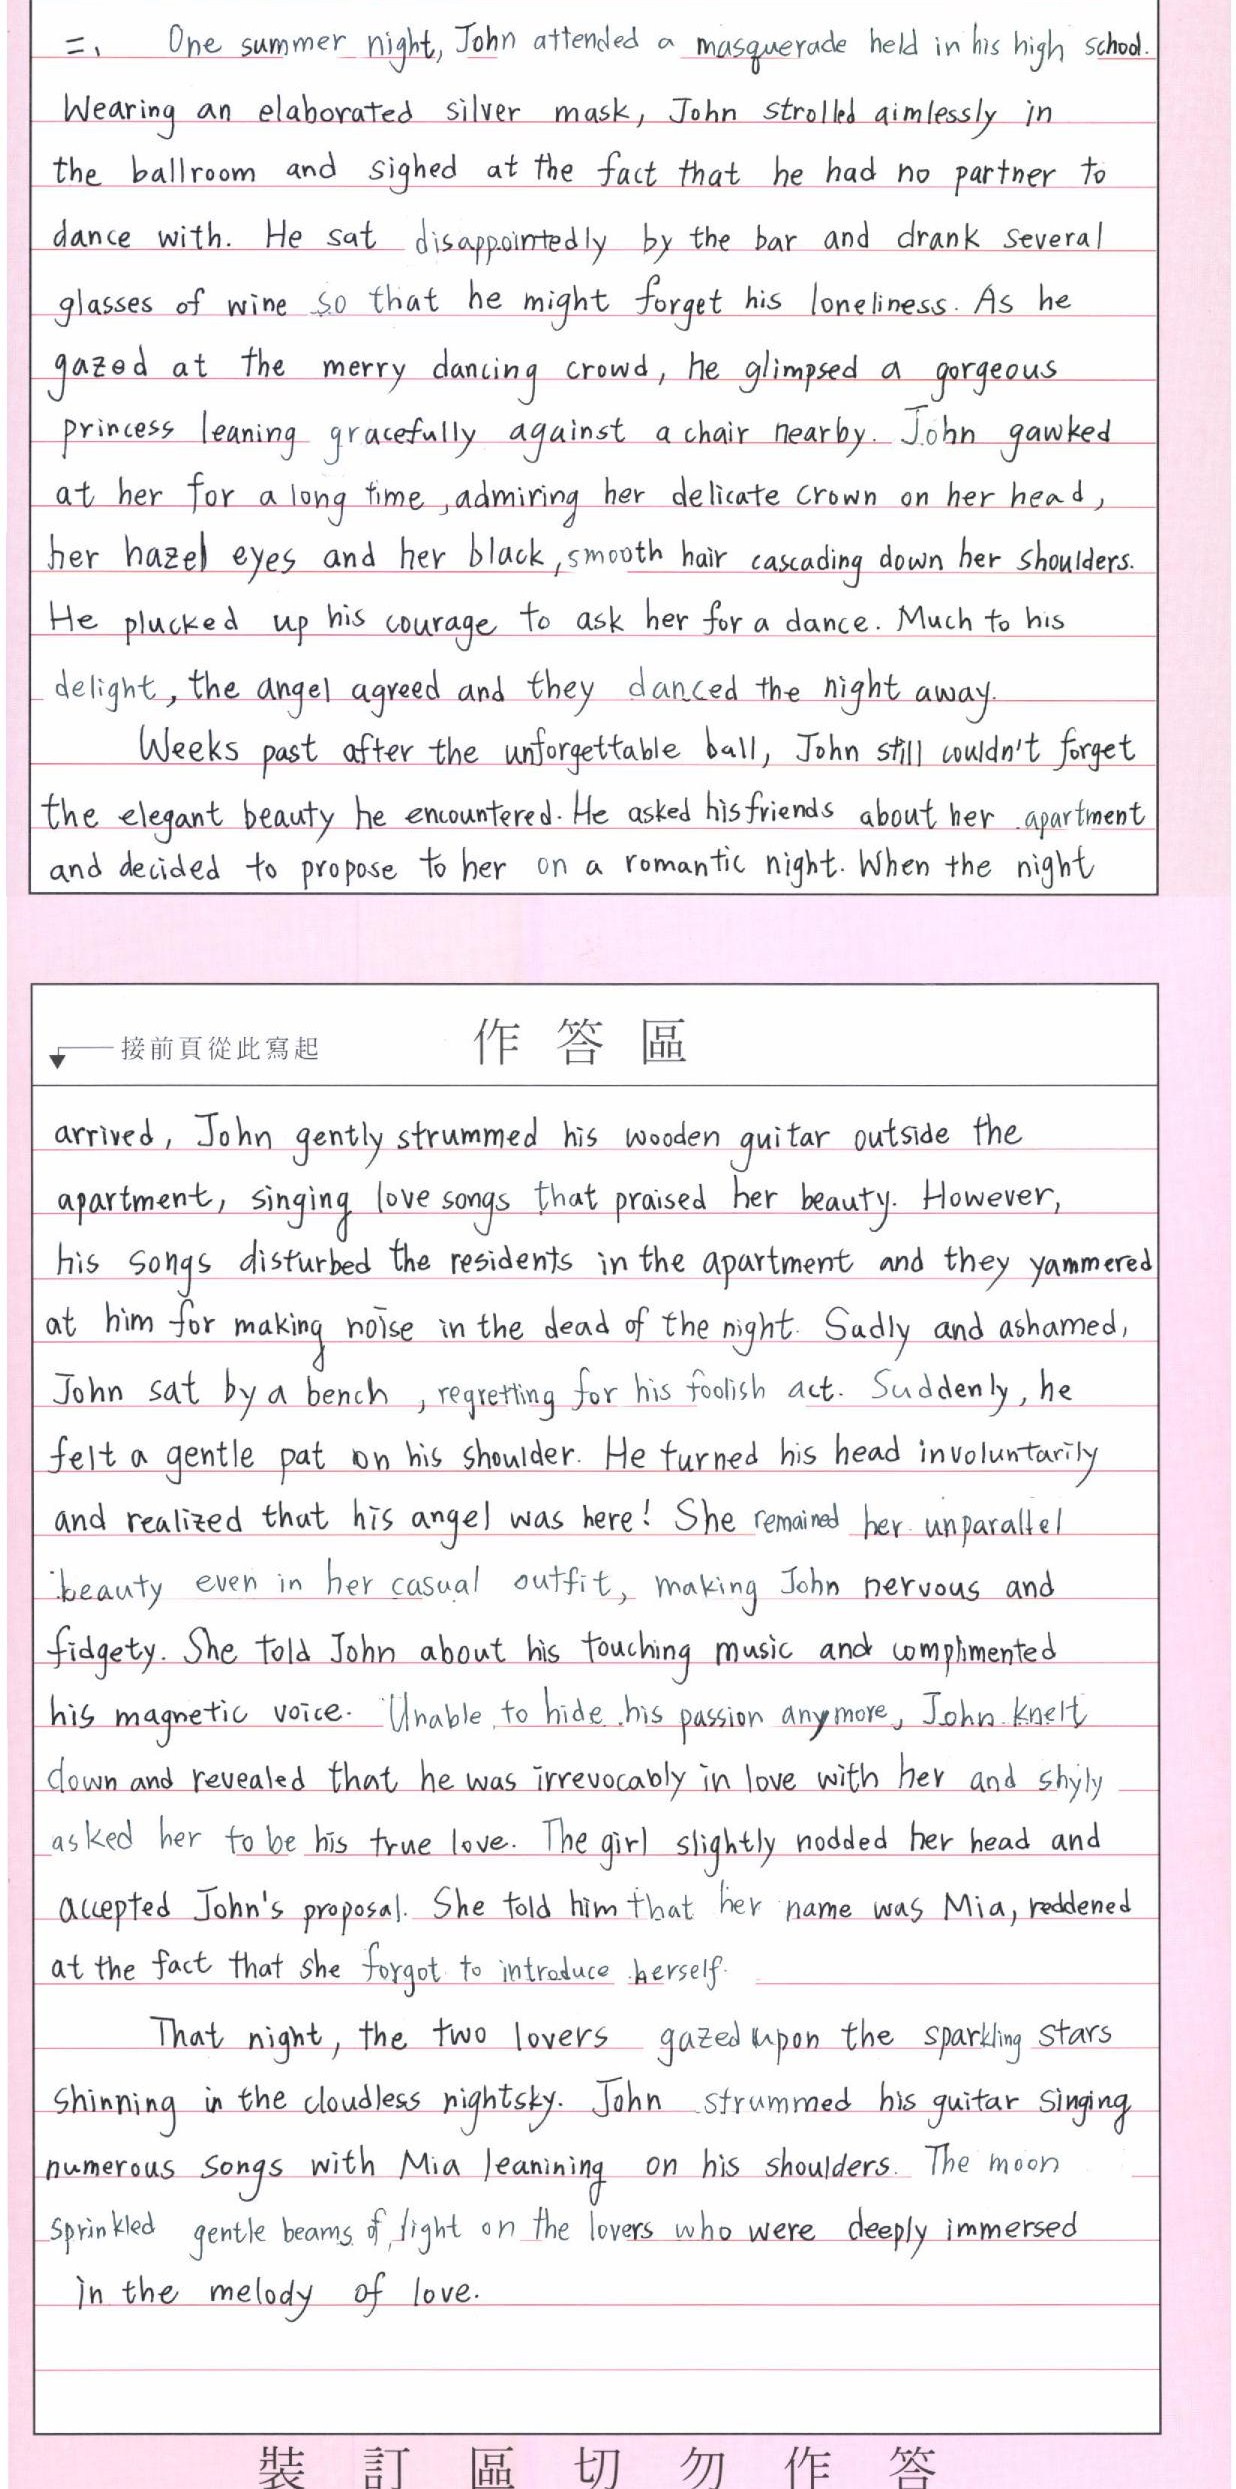 二、 One summer night, John attended a masquerade held in his high school.
Wearing an elaborated silver mask, John strolled aimlessly in
the ballroom and sighed at the fact that he had no partner to
dance with. He sat disappointedly by the bar and drank several
glasses of wine so that he might forget his loneliness. As he
gazed at the merry dancing crowd, he glimpsed a gorgeous
princess leaning gracefully against a chair nearby. John gawked
at her for a long time, admiring her delicate crown on her head,
her hazel eyes and her black, smooth hair cascading down her shoulders.
He plucked up his courage to ask her for a dance. Much to his
delight, the angel agreed and they danced the night away.
Weeks past after the unforgettable ball, John still couldn't forget
the elegant beauty he encountered. He asked his friends about her apartment
and decided to propose to her on a romantic night. When the night
接前頁從此寫起 作答區
arrived, John gently strummed his wooden guitar outside the
apartment, singing love songs that praised her beauty. However,
his songs disturbed the residents in the apartment and they yammered
at him for making noise in the dead of the night. Sadly and ashamed,
John sat by a bench, regretting for his foolish act. Suddenly, he
felt a gentle pat on his shoulder. He turned his head involuntarily
and realized that his angel was here! She remained her unparallel
beauty even in her casual outfit, making John nervous and
fidgety. She told John about his touching music and complimented
his magnetic voice. Unable to hide his passion anymore, John knelt
down and revealed that he was irrevocably in love with her and shyly
asked her to be his true love. The girl slightly nodded her head and
accepted John's proposal. She told him that her name was Mia, reddened
at the fact that she forgot to introduce herself.
That night, the two lovers gazed upon the sparkling stars
shinning in the cloudless nightsky. John strummed his guitar singing
numerous songs with Mia leanining on his shoulders. The moon
sprinkled gentle beams of light on the lovers who were deeply immersed
in the melody of love.
裝訂區切勿作答